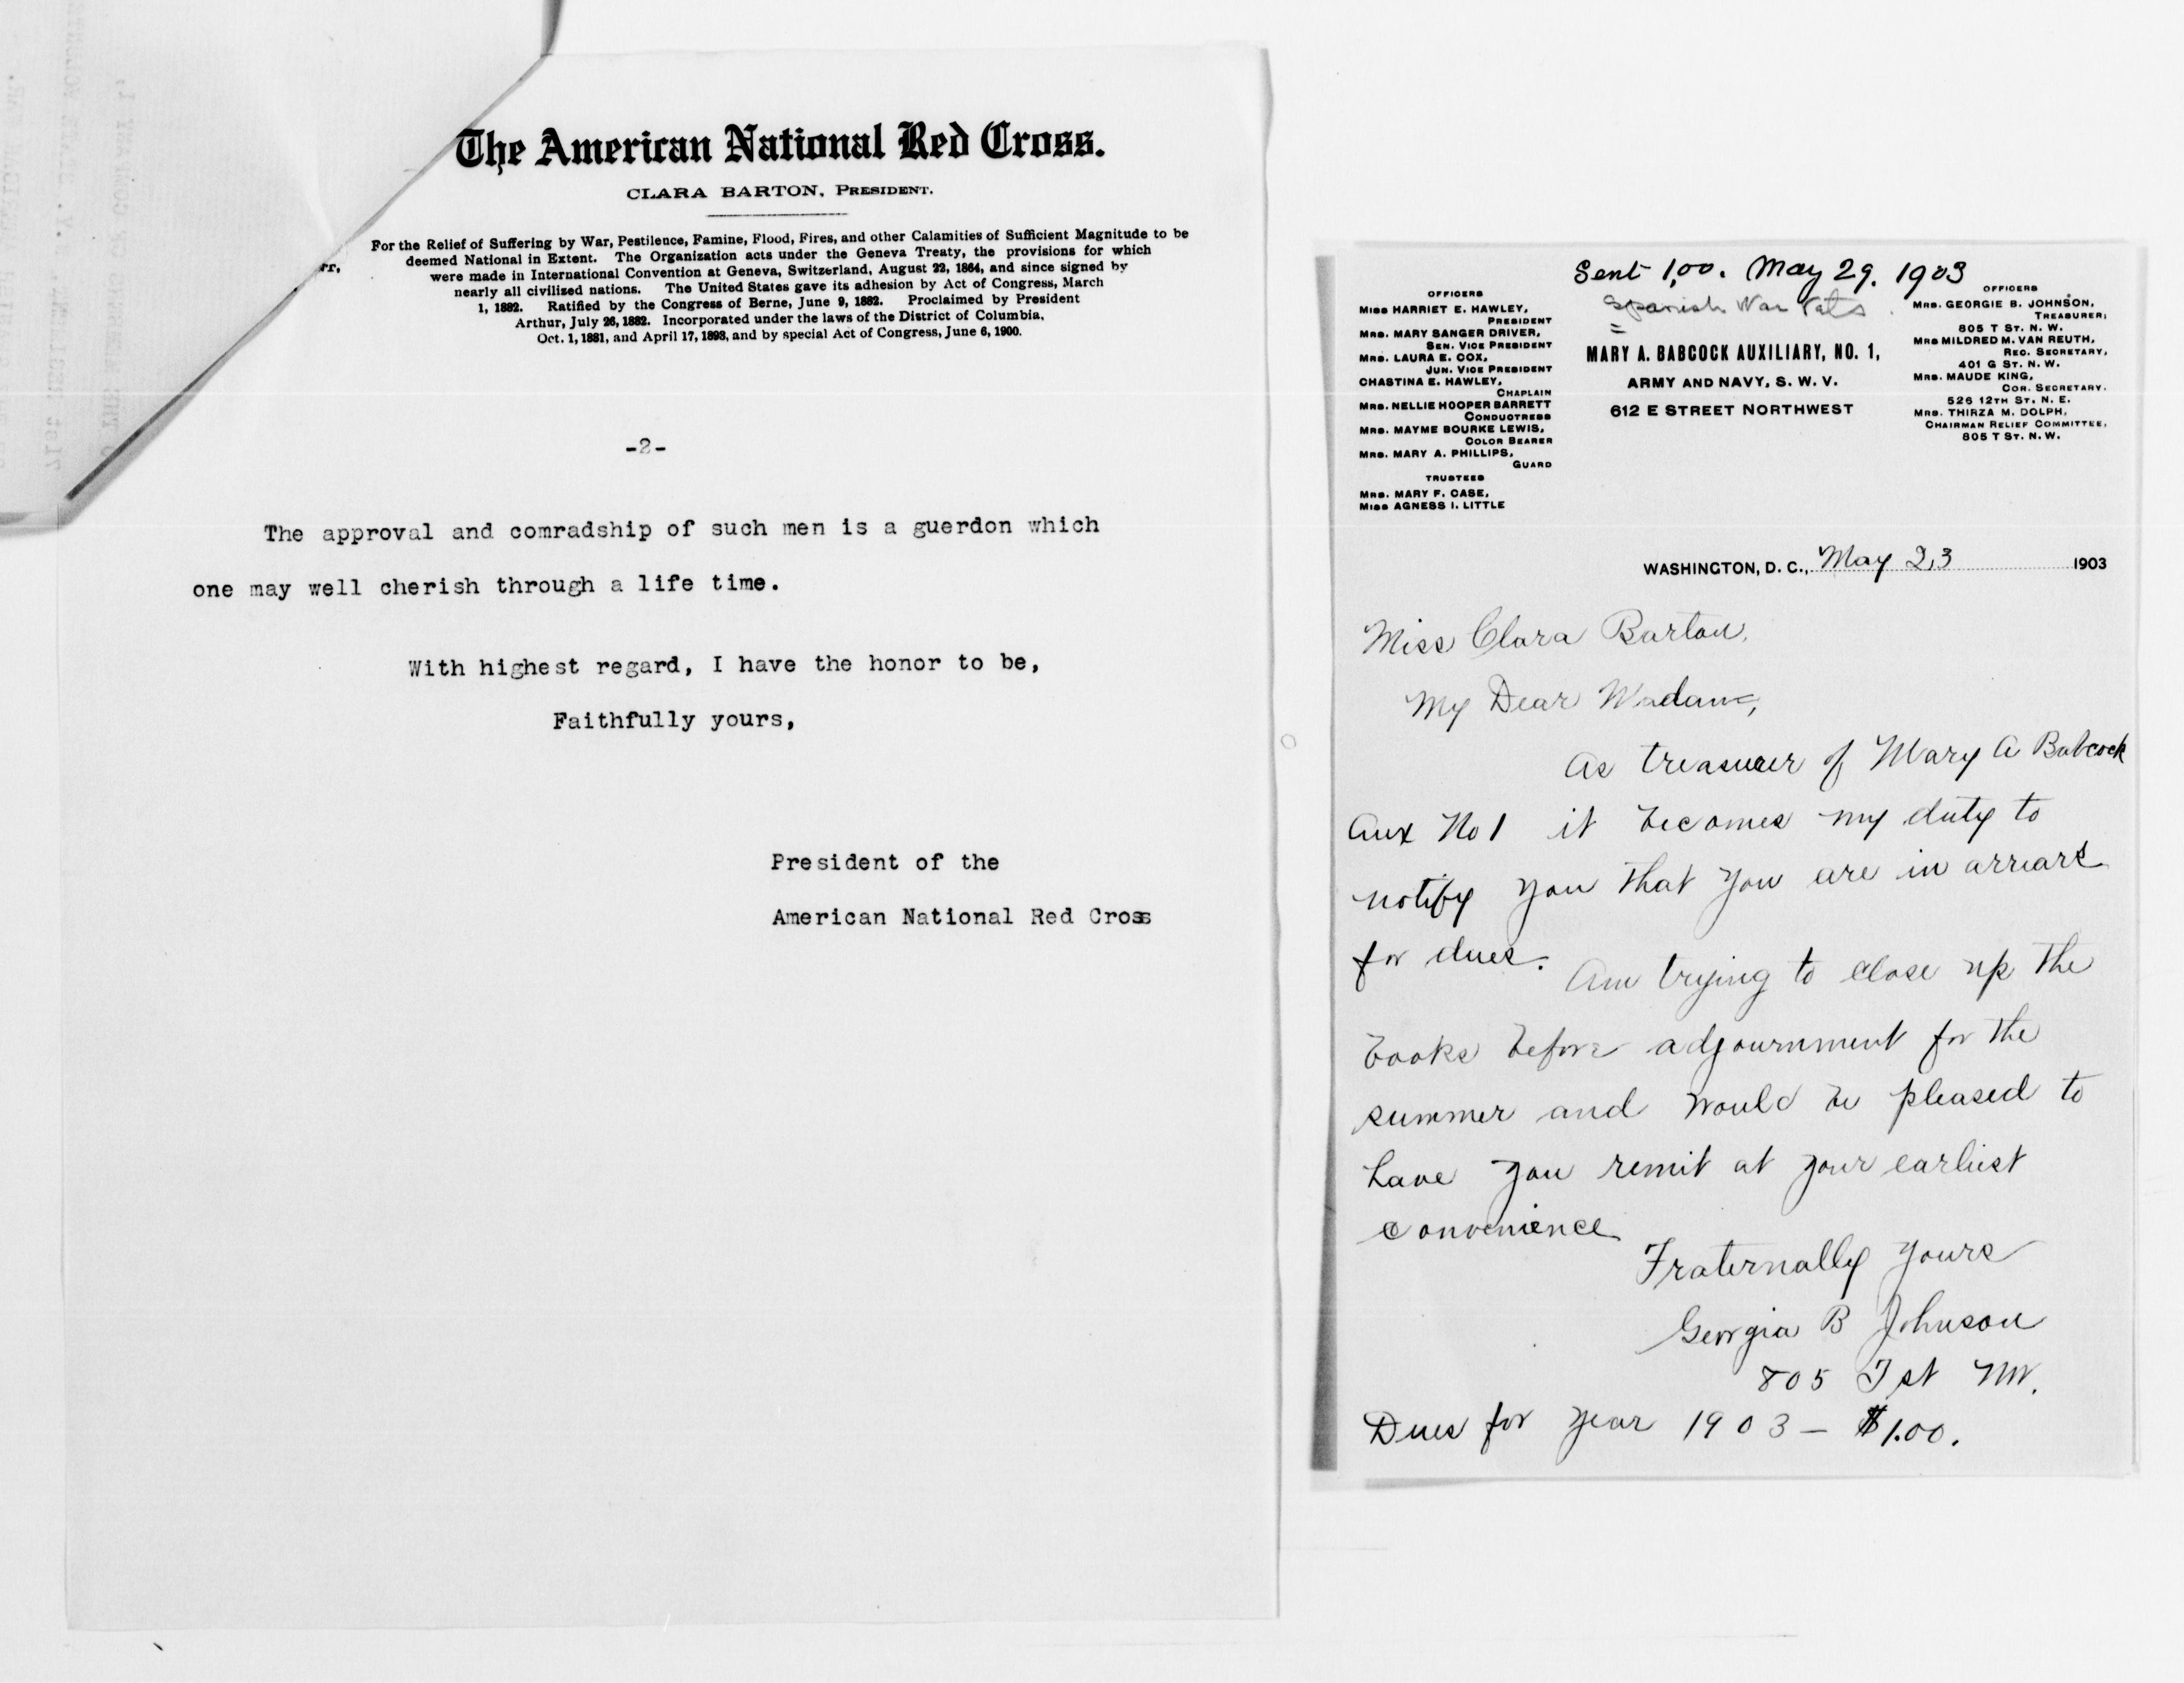 The American National Red Cross.
CLARA BARTON, PRESIDENT.
For the Relief of Suffering by War, Pestilence, Famine, Flood, Fires, and other Calamities of Sufficient Magnitude to be
deemed National in Extent. The Organization acts under the Geneva Treaty, the provisions for which
were made in International Convention at Geneva, Switzerland, August 22, 1864, and since signed by
nearly all civilized nations. The United States gave its adhesion by Act of Congress, March
1, 1882. Ratified by the Congress of Berne, June 9, 1882. Proclaimed by President
Arthur, July 26, 1882. Incorporated under the laws of the District of Columbia,
Oct. 1, 1881, and April 17, 1893, and by special Act of Congress, June 6, 1900.
-2-
The approval and comradship of such men is a guerdon which
one may well cherish through a life time.
With highest regard, I have the honor to be,
Faithfully yours,
President of the
American National Red Cross
Sent 1,00. May 29. 1903
Spanish War Vets
OFFICERS
MISS HARRIET E. HAWLEY,
PRESIDENT
MRS. MARY SANGER DRIVER,
SEN. VICE PRESIDENT
MRS. LAURA E. COX,
JUN. VICE PRESIDENT
CHASTINA E. HAWLEY,
CHAPLAIN
MRS. NELLIE HOOPER BARRETT
CONDUCTRESS
MRS. MAYME BOURKE LEWIS,
COLOR BEARER
MRS. MARY A. PHILLIPS,
GUARD
TRUSTEES
MRS. MARY F. CASE,
MISS AGNESS I. LITTLE
MARY A. BABCOCK AUXILIARY, NO. 1,
ARMY AND NAVY, S. W. V.
612 E STREET NORTHWEST
OFFICERS
MRS. GEORGIE B. JOHNSON,
TREASURER;
805 T ST. N. W.
MRS MILDRED M. VAN REUTH,
REC. SECRETARY,
401 G ST. N. W.
MRS. MAUDE KING,
COR. SECRETARY.
526 12TH ST. N. E.
MRS. THIRZA M. DOLPH,
CHAIRMAN RELIEF COMMITTEE,
805 T ST. N. W.
WASHINGTON, D. C., May 23 1903
Miss Clara Barton,
My Dear Madam,
As treasurer of Mary A Babcock
Aux No 1 it becomes my duty to
notify you that you are in arrears
for dues.
Am trying to close up the
books before adjournment for the
summer and would be pleased to
have you remit at your earliest
convenience
Fraternally yours
Georgia B Johnson
805 T st NW.
Dues for year 1903 - $1.00.